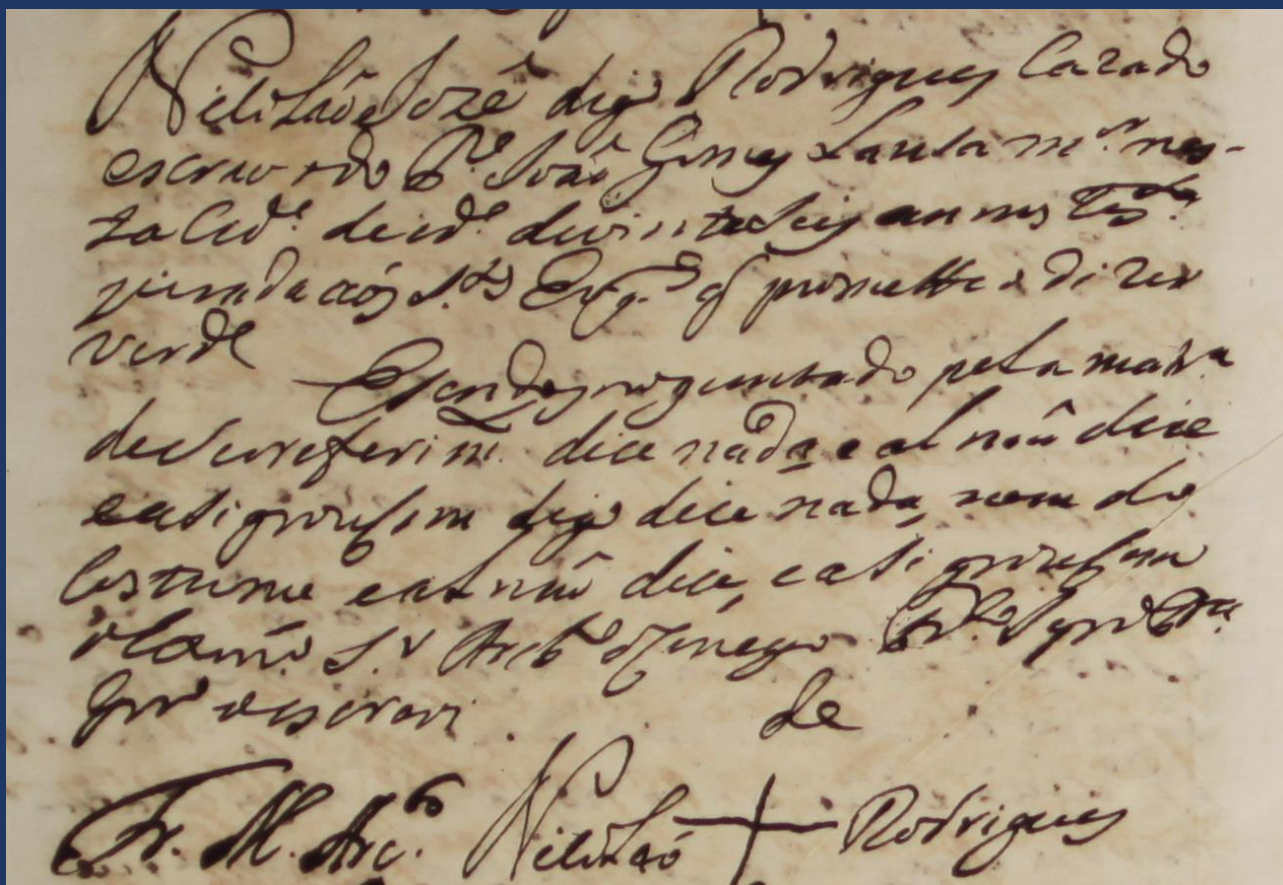 Nicoláo Jozê digo Rodrigues Cazado
escravo do P.e João Gomes Lauta m.or nes-
ta Cid.e de id.e de vinte seis annos Test.a
jurada aos S.tos Evg.os q̃ prometteo dizer
verd.e
E sendo proguntado pela matr.a
do seu referim.to dice nada e al nñu dice
e asignou sim digo dice nada, nem do
Costume e al nñu dice, e asignou com
o Sr Arcb.o
Gov o escrevi. de
Fr. M. Arc.o Nicoláo + Rodrigues